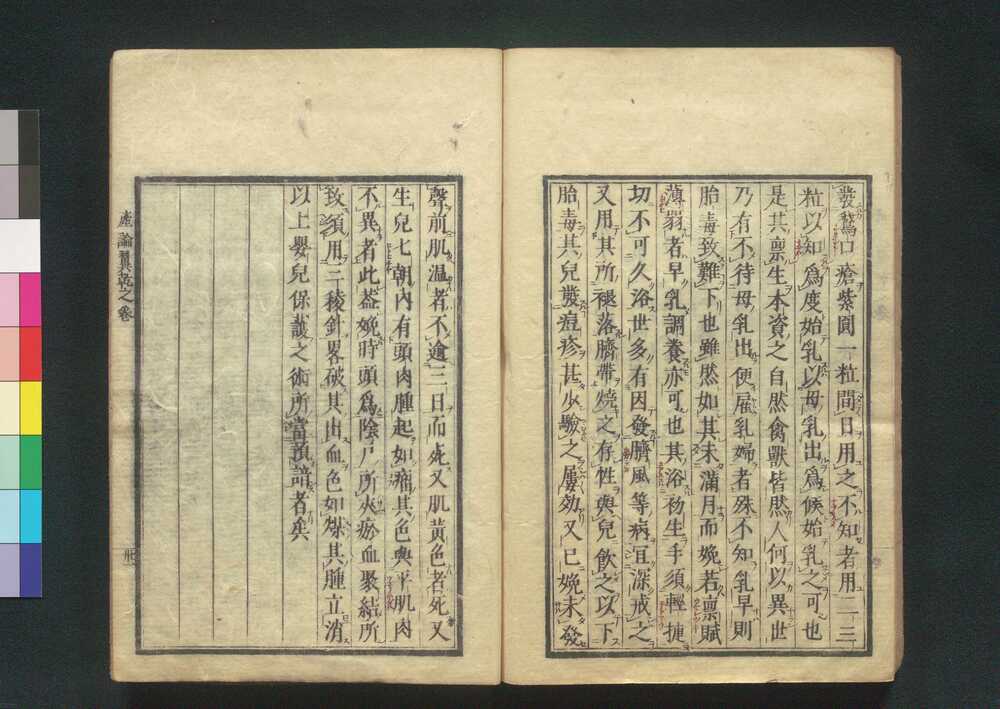 發鵞口瘡紫圓一粒間日用之不知者用二三
粒以知爲度始乳以母乳出爲候始乳之可也
是其稟生本資之自然禽獸皆然人何以異世
乃有不待母乳出便雇乳婦者殊不知乳早則
胎毒致難下也雖然如其未滿月而娩若稟賦
薄弱者早乳調養亦可也其浴初生手須輕捷
切不可久浴世多有因發臍風等病宜深戒之
又用其所褪落臍帶燒之存性與兒飲之以下
胎毒其兒發痘疹甚少驗之屢効又已娩未發
聲前肌温者不逾三日而死又肌黄色者死又
生兒七朝内有頭肉腫起如瘤其色與平肌肉
不異者此葢娩時頭爲陰戸所夾瘀血聚結所
致須用三稜針畧破其出血色如煤其腫立消
以上嬰兒保護之術所當預諳者矣
產論翼乾之卷